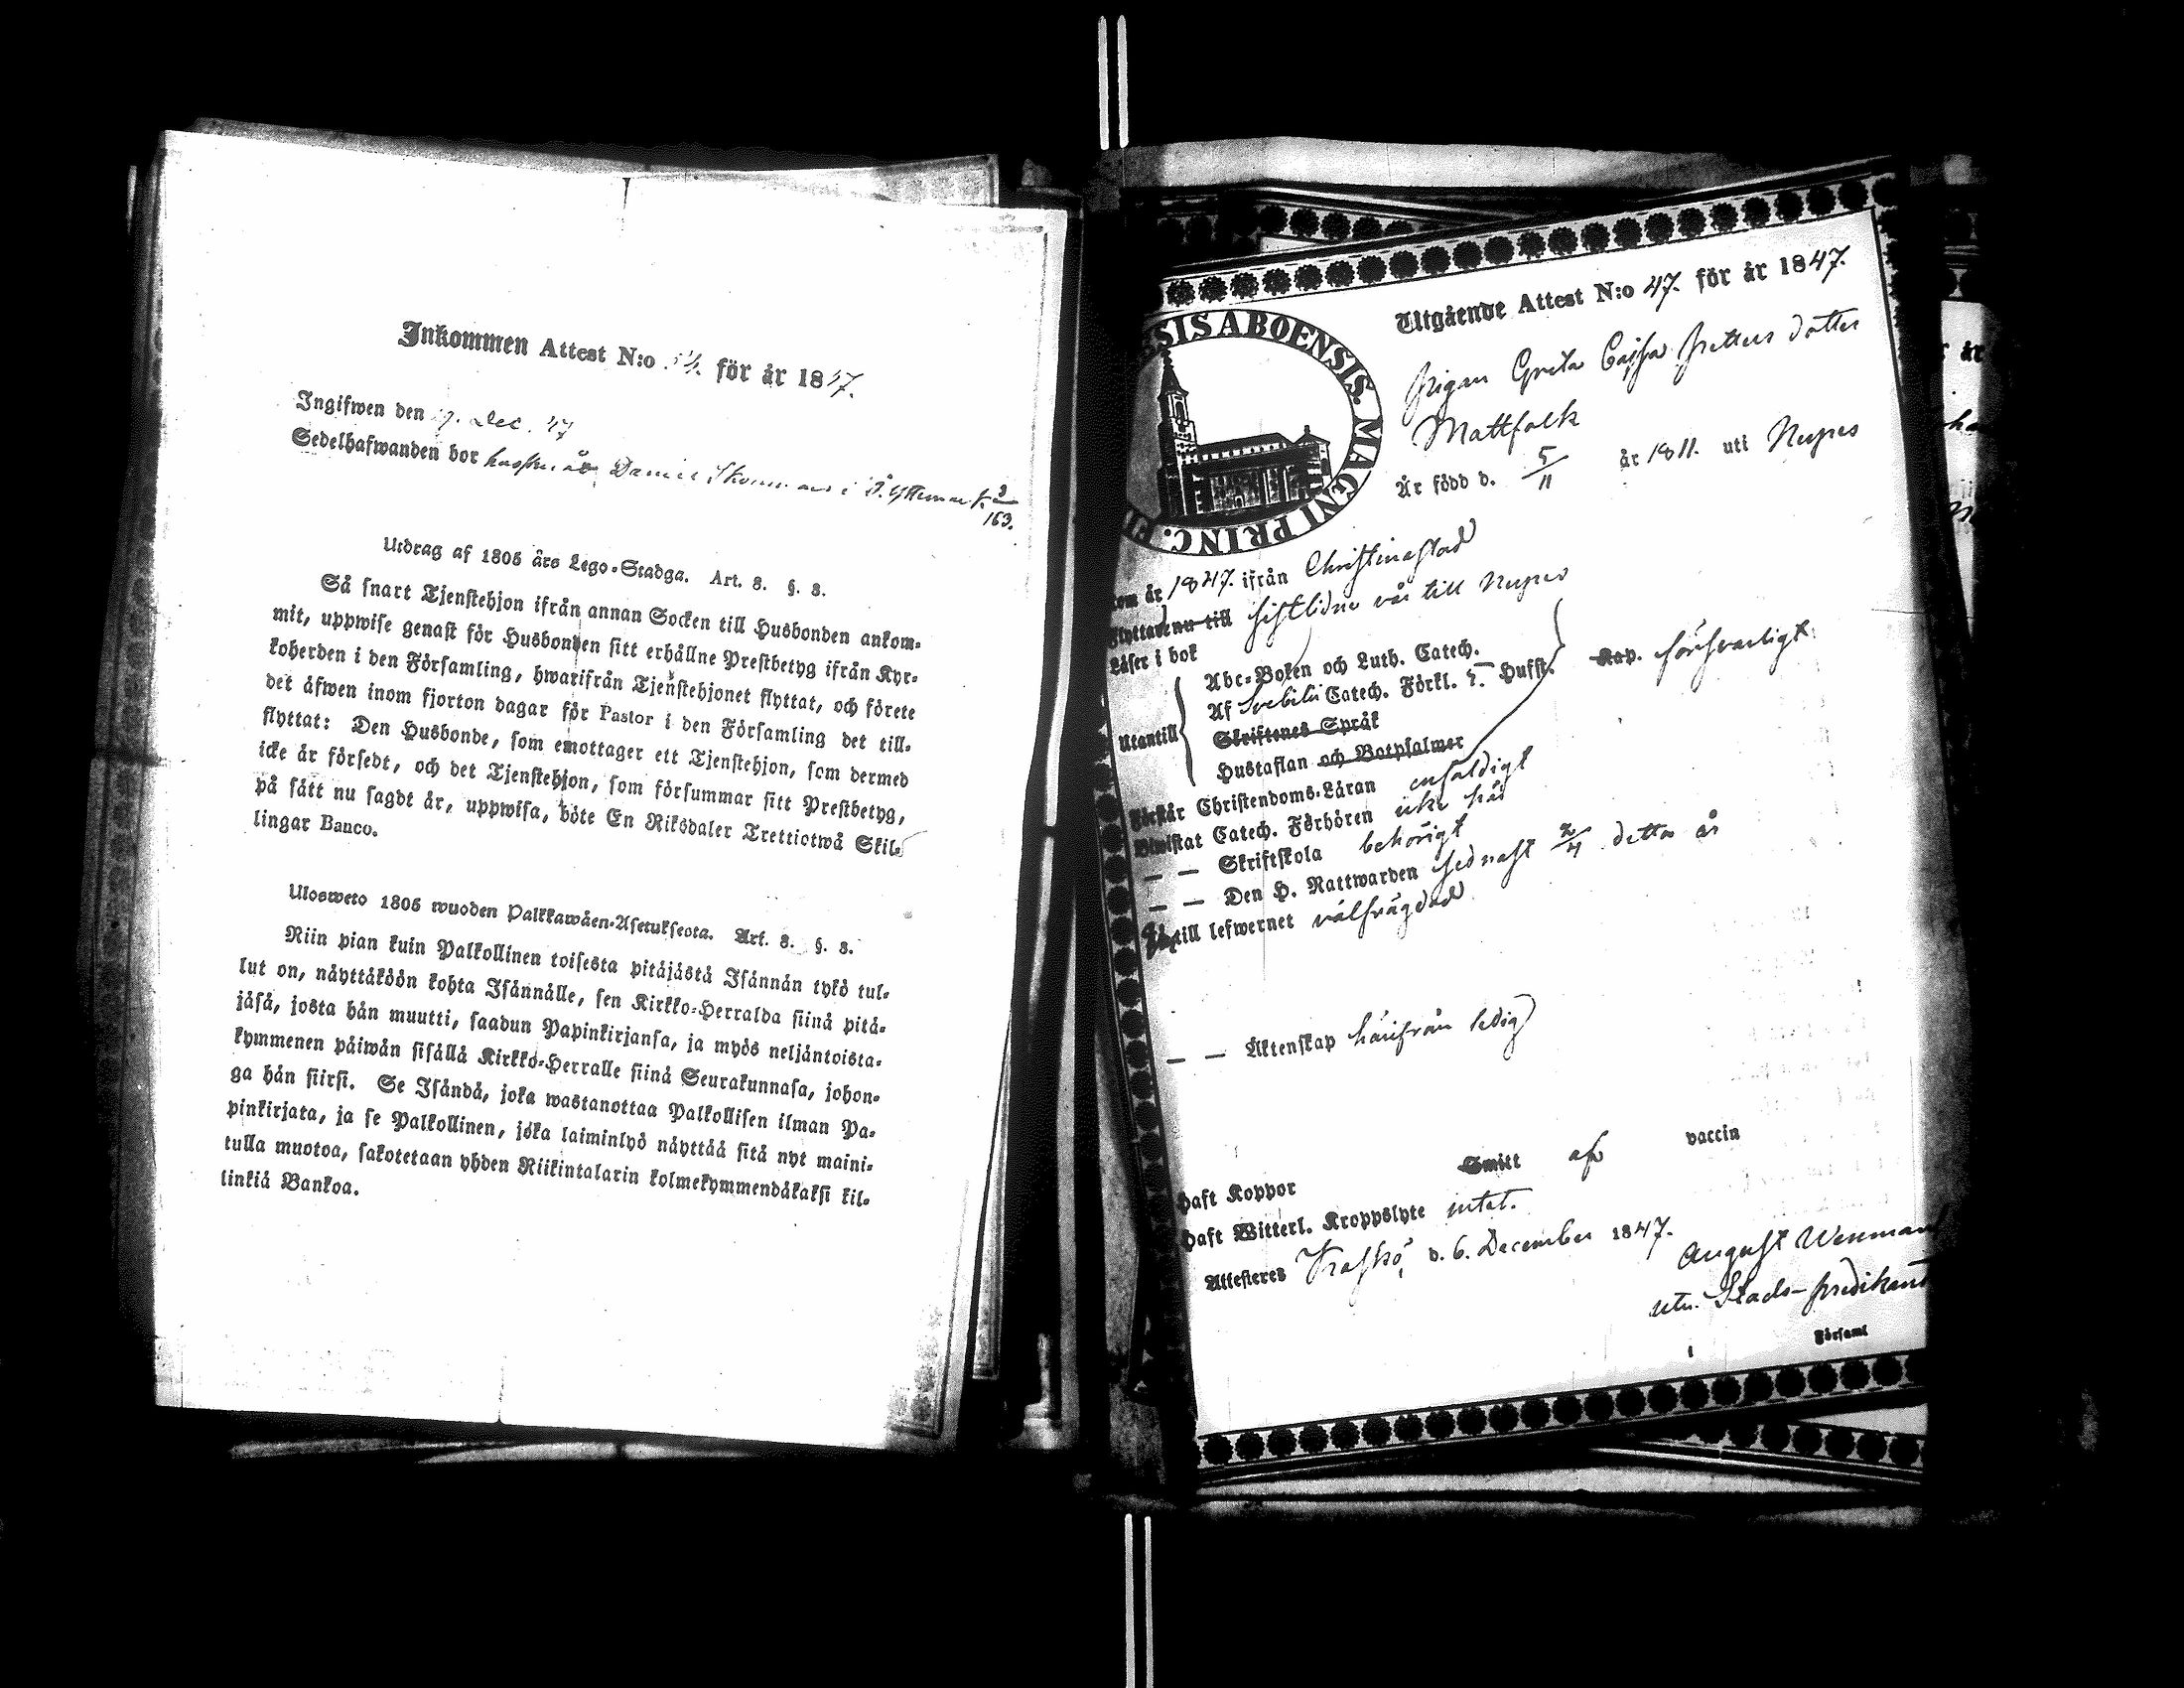 Inkommen Attest N:o 54. för år 1847.
Ingifwen den 9. Dec. 47
Sedelhafwanden bor hos Daniel i Ö. Yttermark 3/163.
Utdrag af 1805 års Lego-Stadga. Art. 8. §. 8.
Så snart Tjenstehjon ifrån annan Socken till Husbonden ankom-
mit, uppwise genast för Husbonden sitt erhållne Prestbetyg ifrån Kyr-
koherden i den Församling, hwarifrån Tjenstehjonet flyttat, och förete
det äfwen inom fjorton dagar för Pastor i den Församling det till-
flyttat: Den Husbonde, som emottager ett Tjenstehjon, som dermed
icke är försedt, och det Tjenstehjon, som försummar sitt Prestbetyg,
på sätt nu sagdt är, uppwisa, böte En Riksdaler Trettiotwå Skil-
lingar Banco.
Ulosweto 1805 wuoden Palkkawäen-Asetuksesta. Art. 8. §. 8.
Niin pian kuin Palkollinen toisesta pitäjästä Isännän tykö tul-
lut on, näyttäköön kohta Isännälle, sen Kirkko-Herralda siinä pitä-
jäsä, josta hän muutti, saadun Papinkirjansa, ja myös neljäntoista-
kymmenen päiwän sisällä Kirkko-Herralle siinä Seurakunnasa, johon-
ga hän siirsi. Se Isändä, joka wastanottaa Palkollisen ilman Pa-
pinkirjata, ja se Palkollinen, joka laiminlyö näyttää sitä nyt maini-
tulla muotoa, sakotetaan yhden Riikintalarin kolmekymmendäkaksi kil-
linkiä Bankoa.
SIS ABOENSIS. MAGNI PRINC. FI
Utgående Attest N:o 47. för år 1847.
Pigan Greta Cajsa Petters dotter
Mattfolk
Är född d. 5/11 år 1811. uti Nerpes
Kom år 1847. ifrån Christinestad
Flyttar nu till sistlidne vår till Nerpes
Läser i bok
Utantill
Abc-Boken och Luth. Catech.
Af Svebilii Catech. Förkl. Husst. Kap. försvarligt
Skriftenes Språk
Hustaflan och Botpsalmer
Förstår Christendoms-Läran enfaldigt
Biwistat Catech. Förhören icke här
— — Skriftskola behörigt
— — Den H. Nattwarden sednast 2/4 detta år
till lefwernet välfrägdad
— — Äktenskap härifrån ledig
Haft Koppor Smitt af vaccin
Haft Witterl. Kroppslyte intet.
Attesteres Kaskö, d. 6. December 1847.
August Wenman
Stads-predikant
Församl